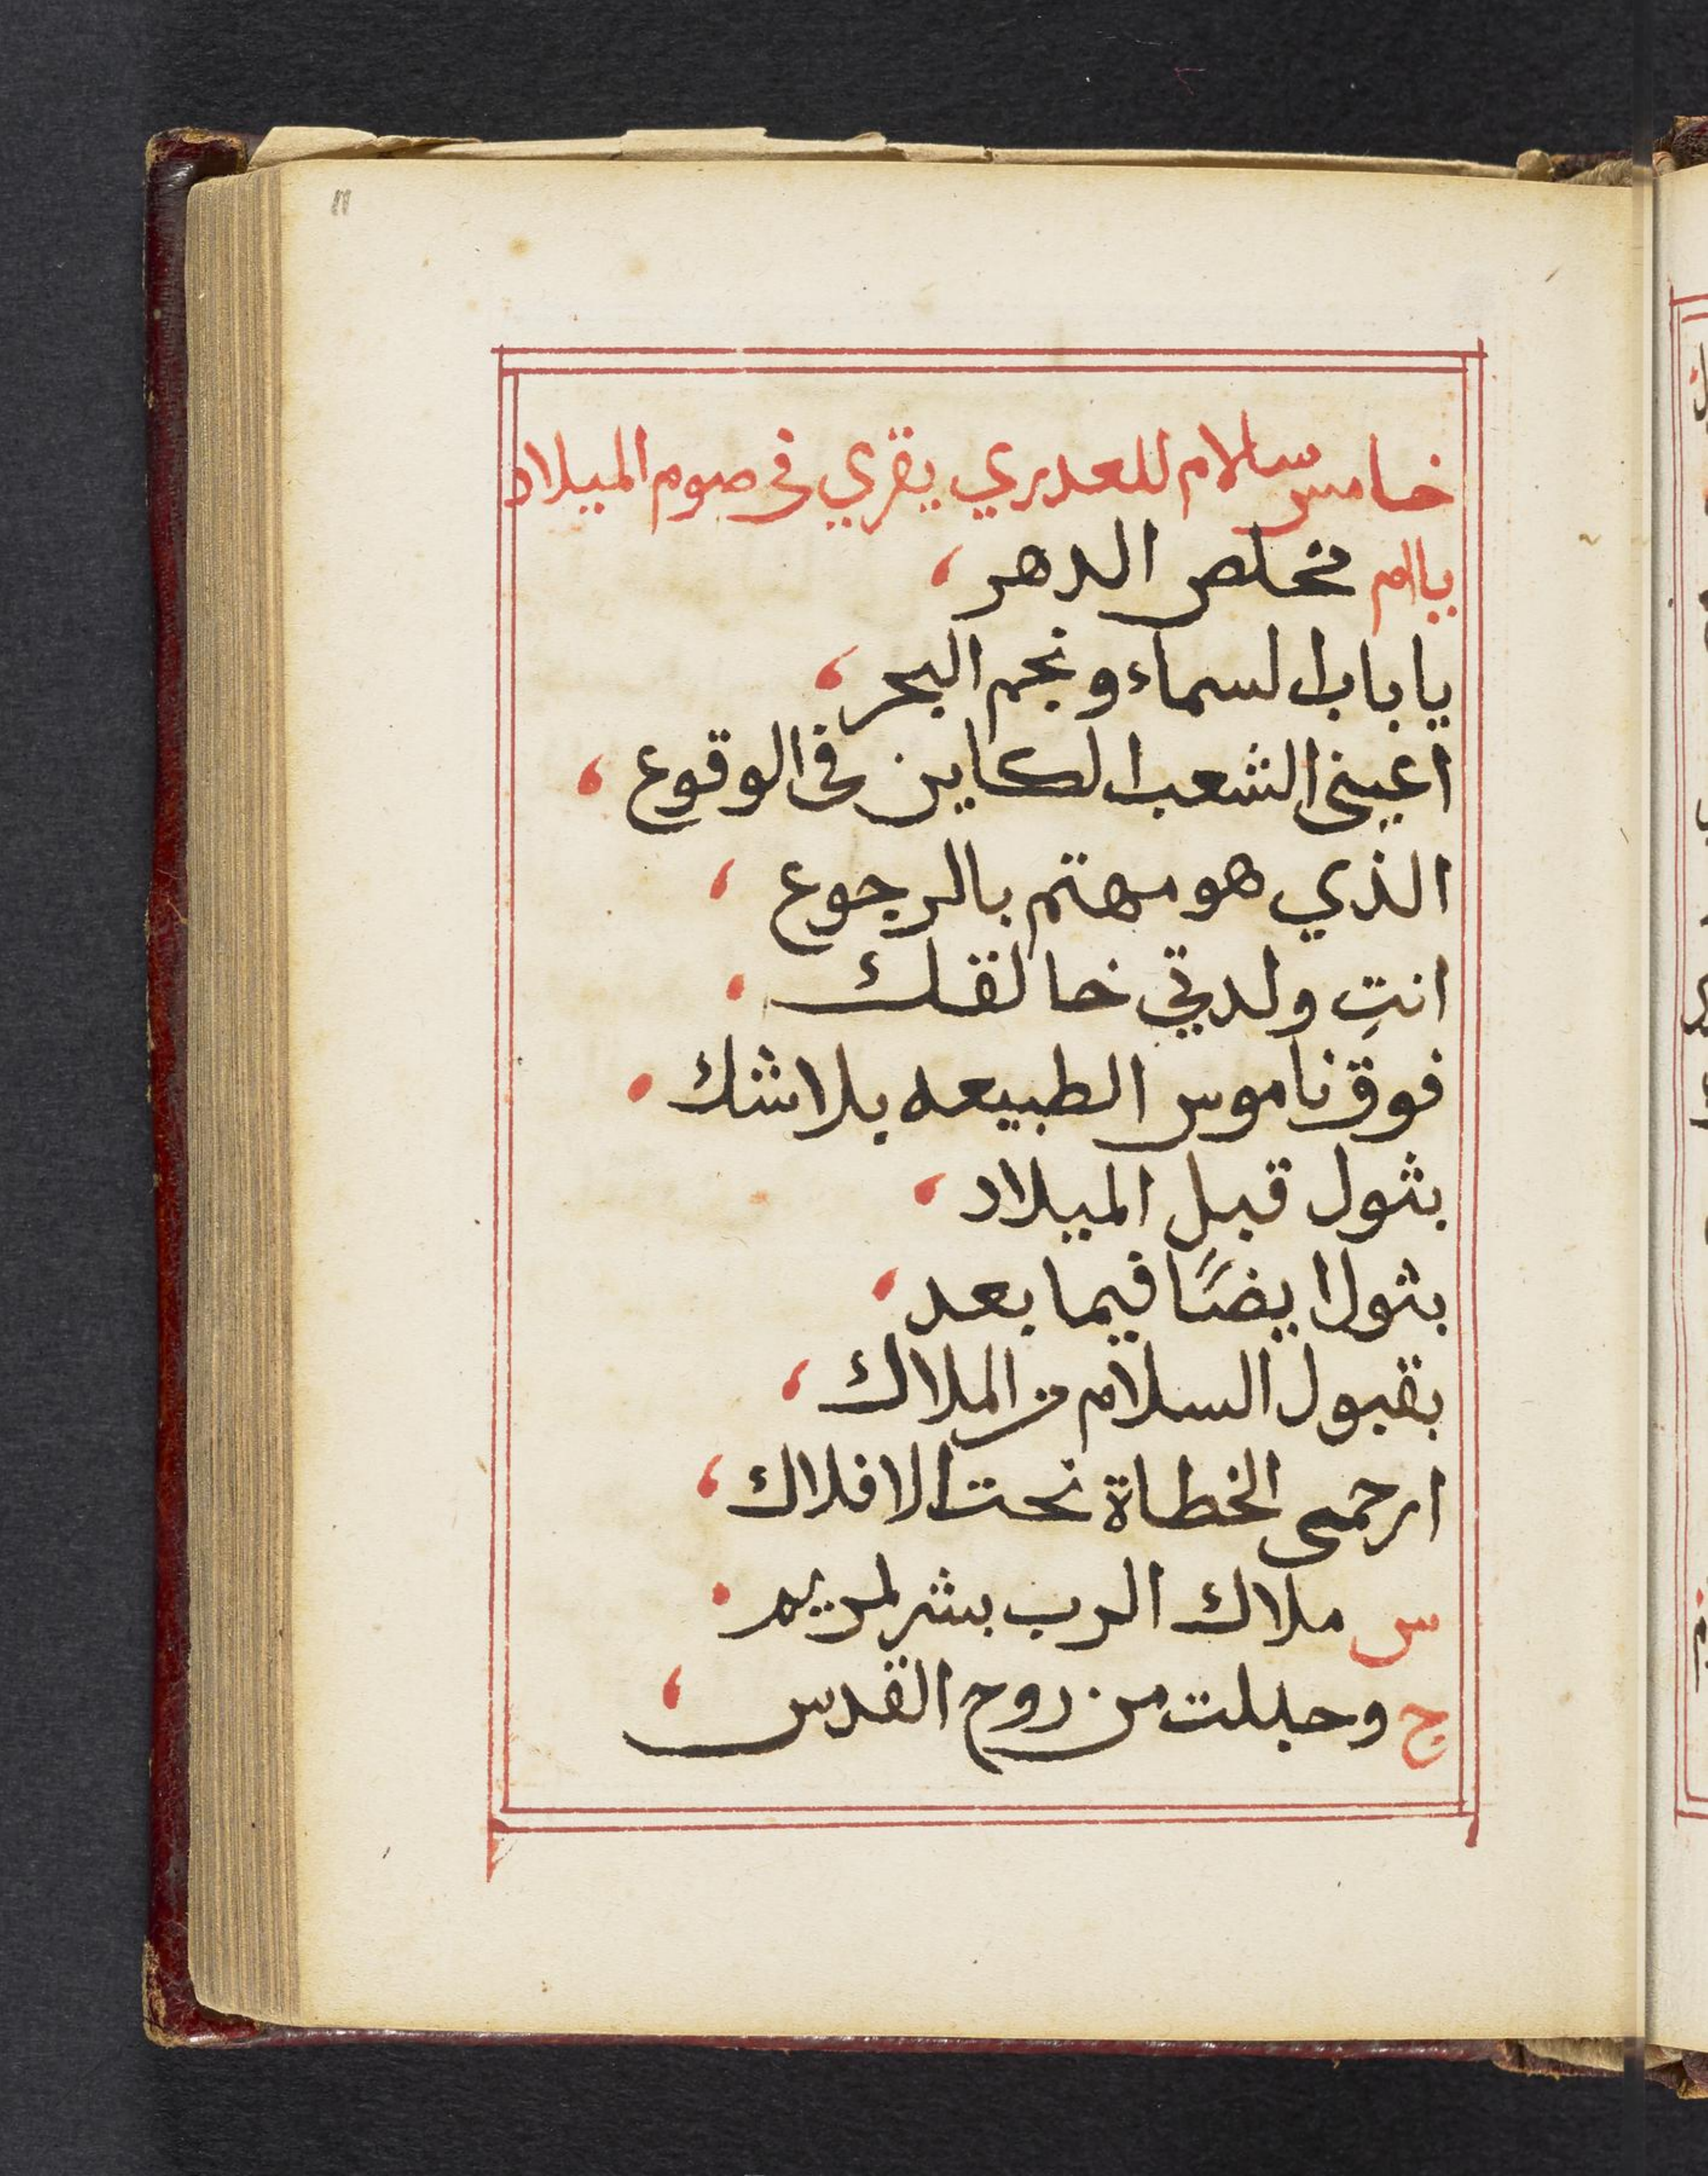 ١١
خامس سالام للعدري يقري في صوم الميلاد
ياام مخلص الدهر،
يا باب السماء ونجم البحر،
اعيني الشعب الكاين في الوقوع،
الذي هو مهتم بالرجوع،
انتِ ولدتي خالقك.
فوق ناموس الطبيعه بلاشك.
بثول قبل الميلاد،
بثول ايضًا فيما بعد،
بقبول السلام من الملاك،
ارحمى الخطاة تحت الافلاك،
س ملاك الرب بشر لمريم.
ج وحبلت من روح القدس،